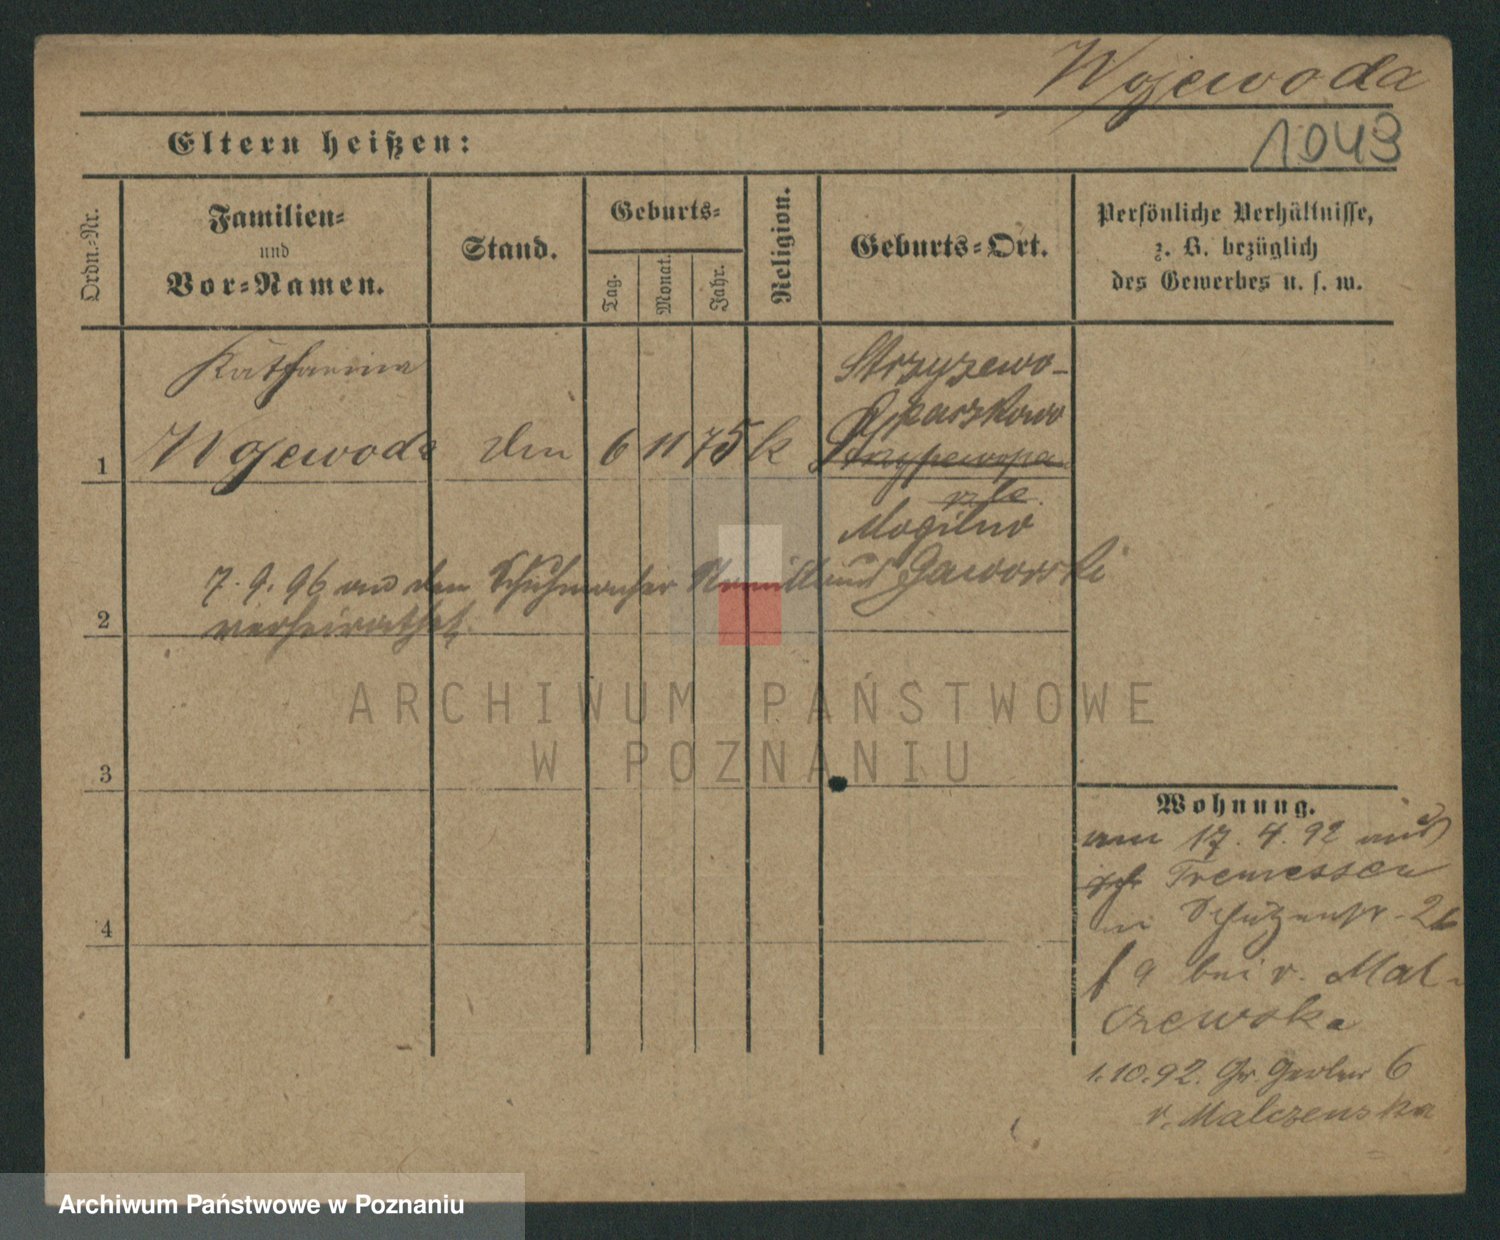 Wojewoda
1043
Eltern heißen:
Ordn.-Nr.
Familien-
und
Vor-Namen.
Stand.
Geburts-
Tag.
Monat.
Jahr.
Religion.
Geburts-Ort.
Persönliche Verhältnisse,
z. B. bezüglich
des Gewerbes u. s. w.
Katharina
Strzyzewo-
Paczkowo
1 Wojewoda 6 11 75 k
Mogilno
7. 9. 96 mit dem Schuhmacher Jaworski
2 verheirathet.
ARCHIWUM PAŃSTWOWE
W POZNANIU
3
Wohnung.
am 17. 4. 92 aus
Tremessen
Schützenstr. 26
4
bei v. Mal-
czewska
1.10.92. Gr. Gerber 6
v. Malczewska
Archiwum Państwowe w Poznaniu